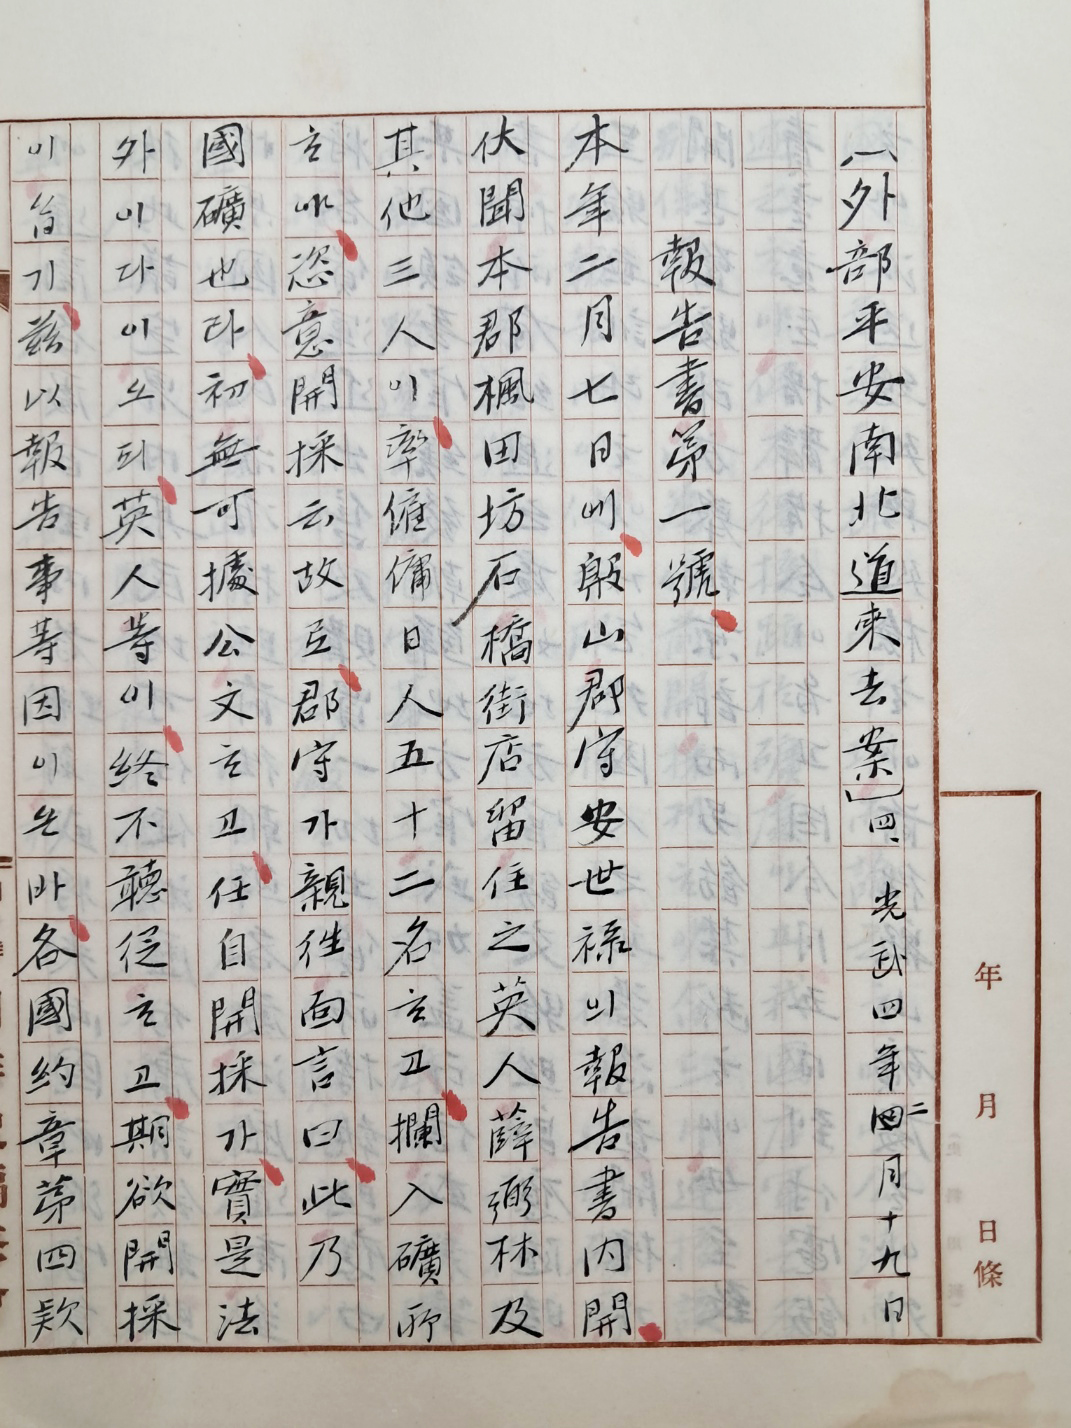 年 月 日條
〔外部平安南北道來去案〕四、 光武四年四二月十九日
報告書第一號
本年二月七日에殷山郡守安世祿의報告書內開
伏聞本郡楓田坊石橋街店留住之英人薛弼林及
其他三人이率僱傭日人五十二名ᄒᆞ고攔入礦所
ᄒᆞ야恣意開採云故로郡守가親往面言曰此乃
國礦也라初無可據公文ᄒᆞ고任自開採가實是法
外이다이오되英人等이終不聽從ᄒᆞ고期欲開採
이습기玆以報告事等因이온바各國約章第四款